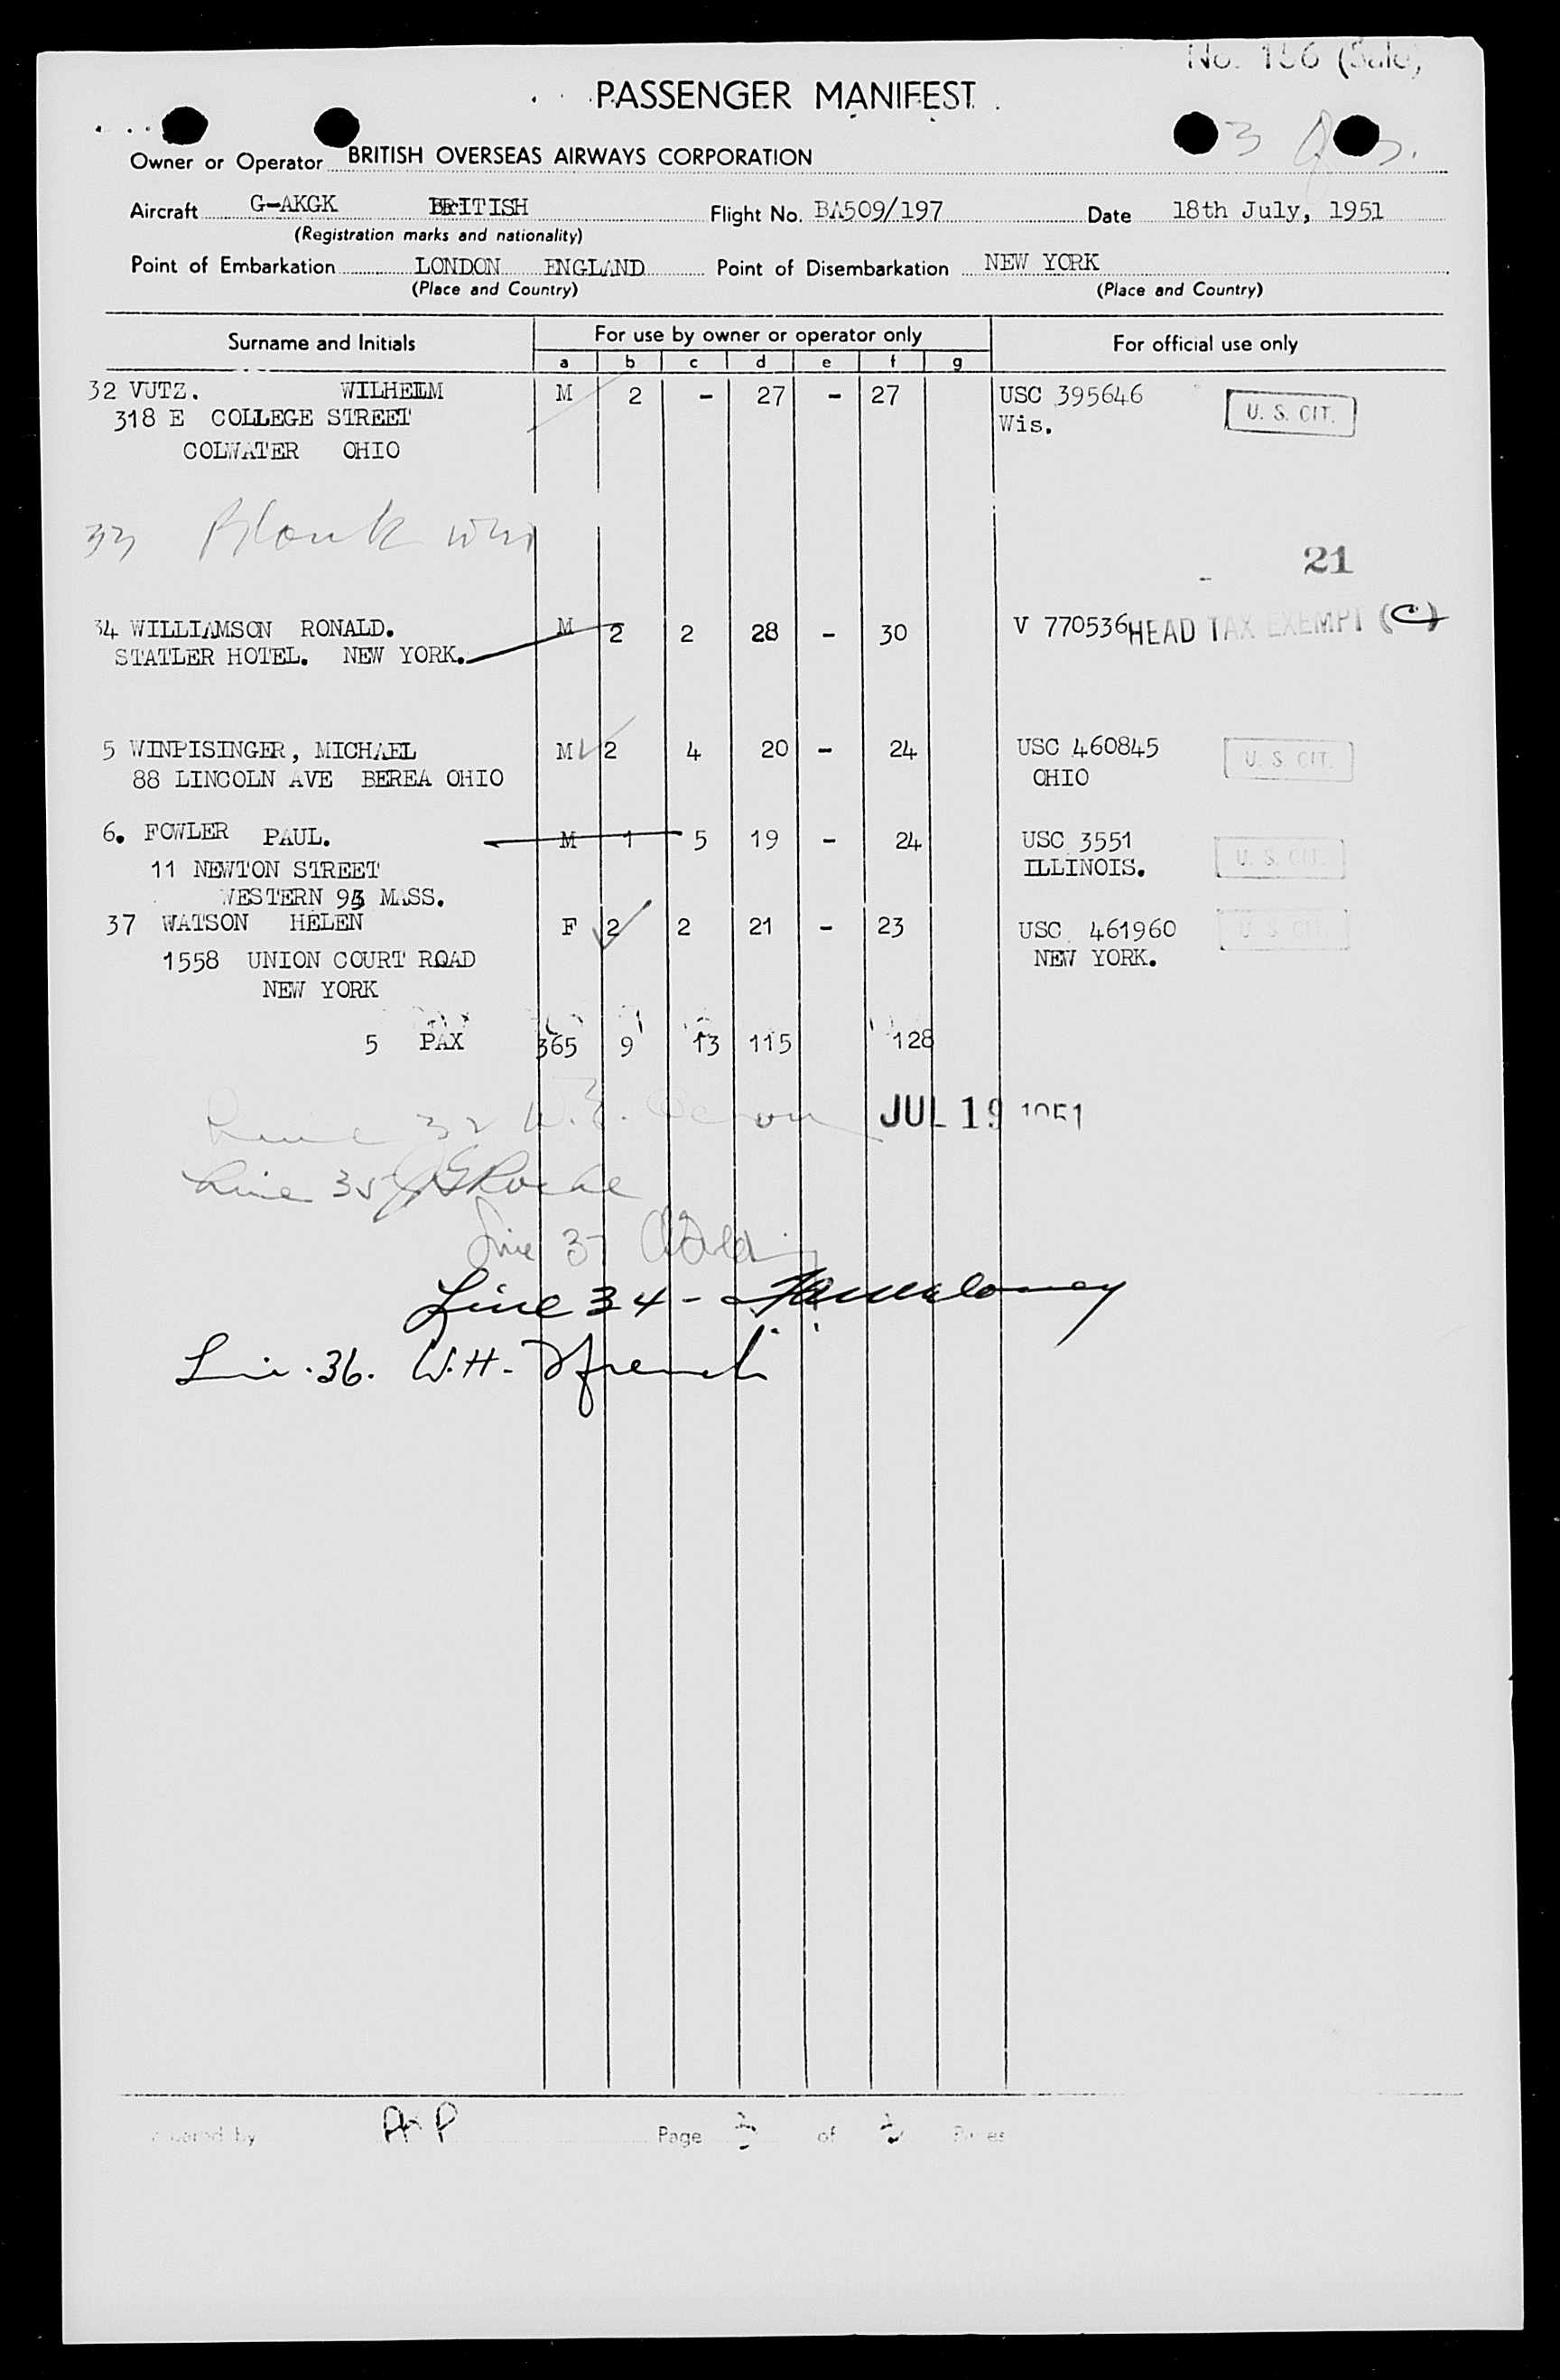 No. 156
PASSENGER MANIFEST
Owner or Operator BRITISH OVERSEAS AIRWAYS CORPORATION
Aircraft G-AKGK BRITISH Flight No. BA509/197 Date 18th July, 1951
(Registration marks and nationality)
Point of Embarkation LONDON ENGLAND Point of Disembarkation NEW YORK
(Place and Country) (Place and Country)
Surname and Initials For use by owner or operator only For official use only
a b c d e f g
32 VUTZ. WILHELM M 2 - 27 - 27 USC 395646 U. S. CIT.
318 E COLLEGE STREET Wis.
COLWATER OHIO
33 Blank
21
34 WILLIAMSON RONALD. M 2 2 28 - 30 V 770536 HEAD TAX EXEMPT (C)
STATLER HOTEL. NEW YORK.
5 WINPISINGER, MICHAEL M 2 4 20 - 24 USC 460845 U. S. CIT.
88 LINCOLN AVE BEREA OHIO OHIO
6. FOWLER PAUL. M 1 5 19 - 24 USC 3551 U. S. CIT.
11 NEWTON STREET ILLINOIS.
WESTERN 93 MASS.
37 WATSON HELEN F 2 2 21 - 23 USC 461960 U. S. CIT.
1558 UNION COURT ROAD NEW YORK.
NEW YORK
5 PAX 365 9 13 115 128
JUL 19 1951
Line 32
Line 35 Roche
Line 37
Line 34 -
Line 36. W.H. French
Page of Pages